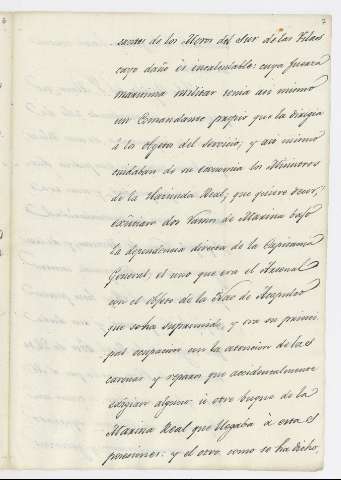 7
cantes de los Moros del Sur de las Yslas
cuyo daño és incalculable: cuya fuerza
maritima militar tenia así mismo
un Comandante propio que la dirigia
á los objetos del servicio; y así mismo
cuidaban de su economia los Ministros
de la Hacienda Real; que quiere decir,
existian dos Ramos de Marina bajo
la dependencia directa de la Capitania
General; el uno que era el Arsenal
con el objeto de la Nao de Acapulco
que se ha suprimido, y era su princi
pal ocupacion con la atencion de las
carenas y reparos que accidentalmente
exigian alguno ú otro buque de la
Marina Real que llegaba á estas
posesiones: y el otro como se ha dicho,